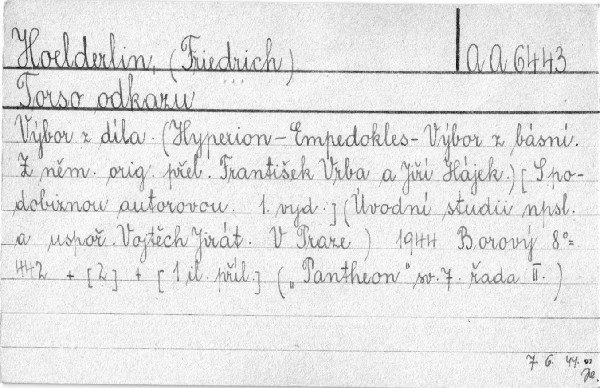 Hoelderlin, (Friedrich)
AA 6443
Torso odkazu
Výbor z díla. (Hyperion – Empedokles – Výbor z básní.
Z něm. orig. přel. František Vrba a Jiří Hájek.) [S po-
dobiznou autorovou. 1. vyd.] (Úvodní studii npsl.
a uspoř. Vojtěch Jirát. V Praze) 1944 Borový 8°=
442 + [2] + [1 il. příl.] („Pantheon“ sv. 7. řada II.)
7. 6. 47.